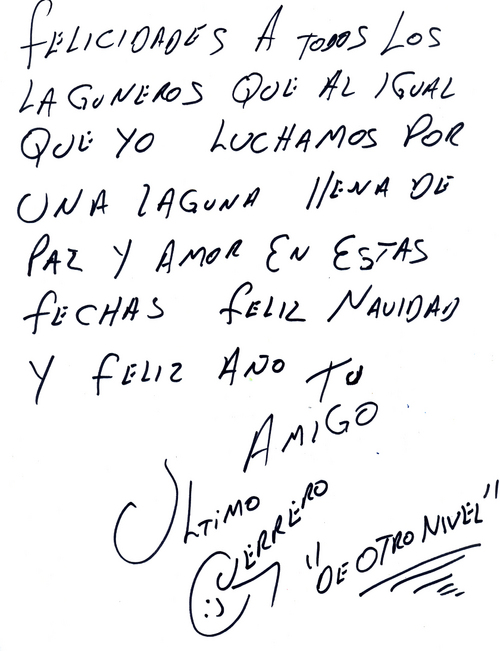 FELICIDADES A TODOS LOS
LAGUNEROS QUE AL IGUAL
QUE YO LUCHAMOS POR
UNA LAGUNA LLENA DE
PAZ Y AMOR EN ESTAS
FECHAS FELIZ NAVIDAD
Y FELIZ ANO TU
AMIGO
ULTIMO
GUERRERO
"DE OTRO NIVEL"